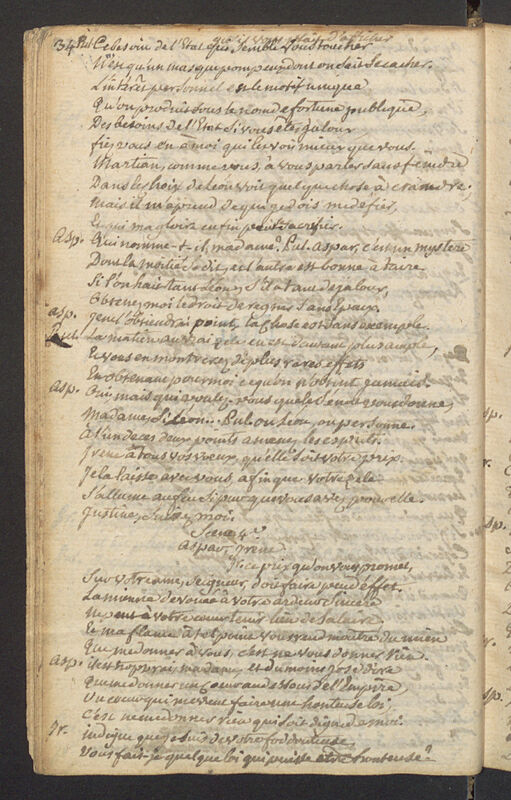 34 Pul. Ce besoin de l'Etat qui semble vous toucher
N'est qu'un masque pompeux dont on sait se cacher.
L'intérêt personnel est le motif unique
Qu'on produit sous le nom de fortune publique,
Des besoins de l'Etat si vous êtes jaloux
fiez vous en à moi qui les voi mieux que vous.
Martian, comme vous, à vous parler sans feindre
Dans le choix de Léon voit quelque chose à craindre;
Mais il m'aprend de qui je dois me défier,
Et qui ma gloire enfin peut sacrifier.
Asp. Qui nomme-t-il, madame? Pul. Aspar, c'est un mystere
Dont la moitié se dit, et l'autre est bonne à taire.
Si l'on hait tant Léon, s'il a tant de jaloux,
Obtenez moi le droit de regner sans Epoux.
asp. Je ne l'obtiendrai point, la chose est sans exemple.
Pul. La matiere au vrai zele en est d'autant plus ample,
Et vous en montrerez de plus rares effets
En obtenant pour moi ce qu'on n'obtint jamais.
Asp. Oui, mais qui voulez-vous que le Senat vous donne,
Madame, si Léon... Pul. ou Léon, ou personne.
A l'un de ces deux points amenez les esprits.
Irene à tous vos voeux, qu'elle soit votre prix.
Je la laisse avec vous, afin que votre zele
S'allume au feu si pur que vous avez pour elle.
Justine, suivez moi.
Scene 4e.
Aspar, Irene
Ir. Ce prix qu'on vous promet,
Sur votre ame, Seigneur, doit faire peu d'effet.
La mienne devouée à votre ardeur sincere
Ne peut à votre coeur tenir lieu de salaire
Et ma flame à tel point vous rend maitre du mien
Que me donner à vous, c'est ne vous donner rien.
Asp. il est trop vrai, madame, et du moins j'ose dire
Que me donner un coeur au dessous de l'Empire
Un coeur qui me veut faire une honteuse loi,
C'est ne me donner rien qui soit digne de moi.
Ir. indigne que je suis d'une foi douteuse,
Vous fait-je quelque loi qui puisse être honteuse?